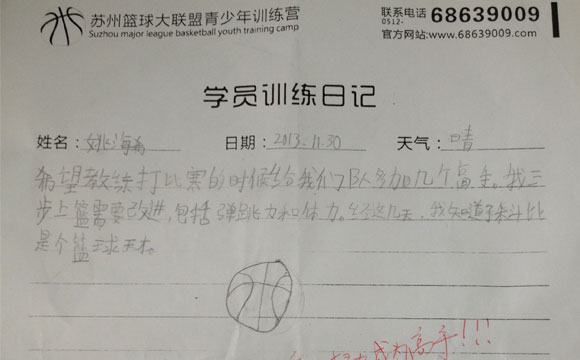 苏州篮球大联盟青少年训练营
Suzhou major league basketball youth training camp
联系电话 0512- 68639009
官方网站:www.68639009.com
学员训练日记
姓名: 姚海希 日期: 2013.11.30 天气: 晴
希望教练打比赛的时候给我们队多加几个高手。我三
步上篮需要改进,包括弹跳力和体力。经这几天,我知道了朱斗比
是个篮球天才。
成为高手!!!